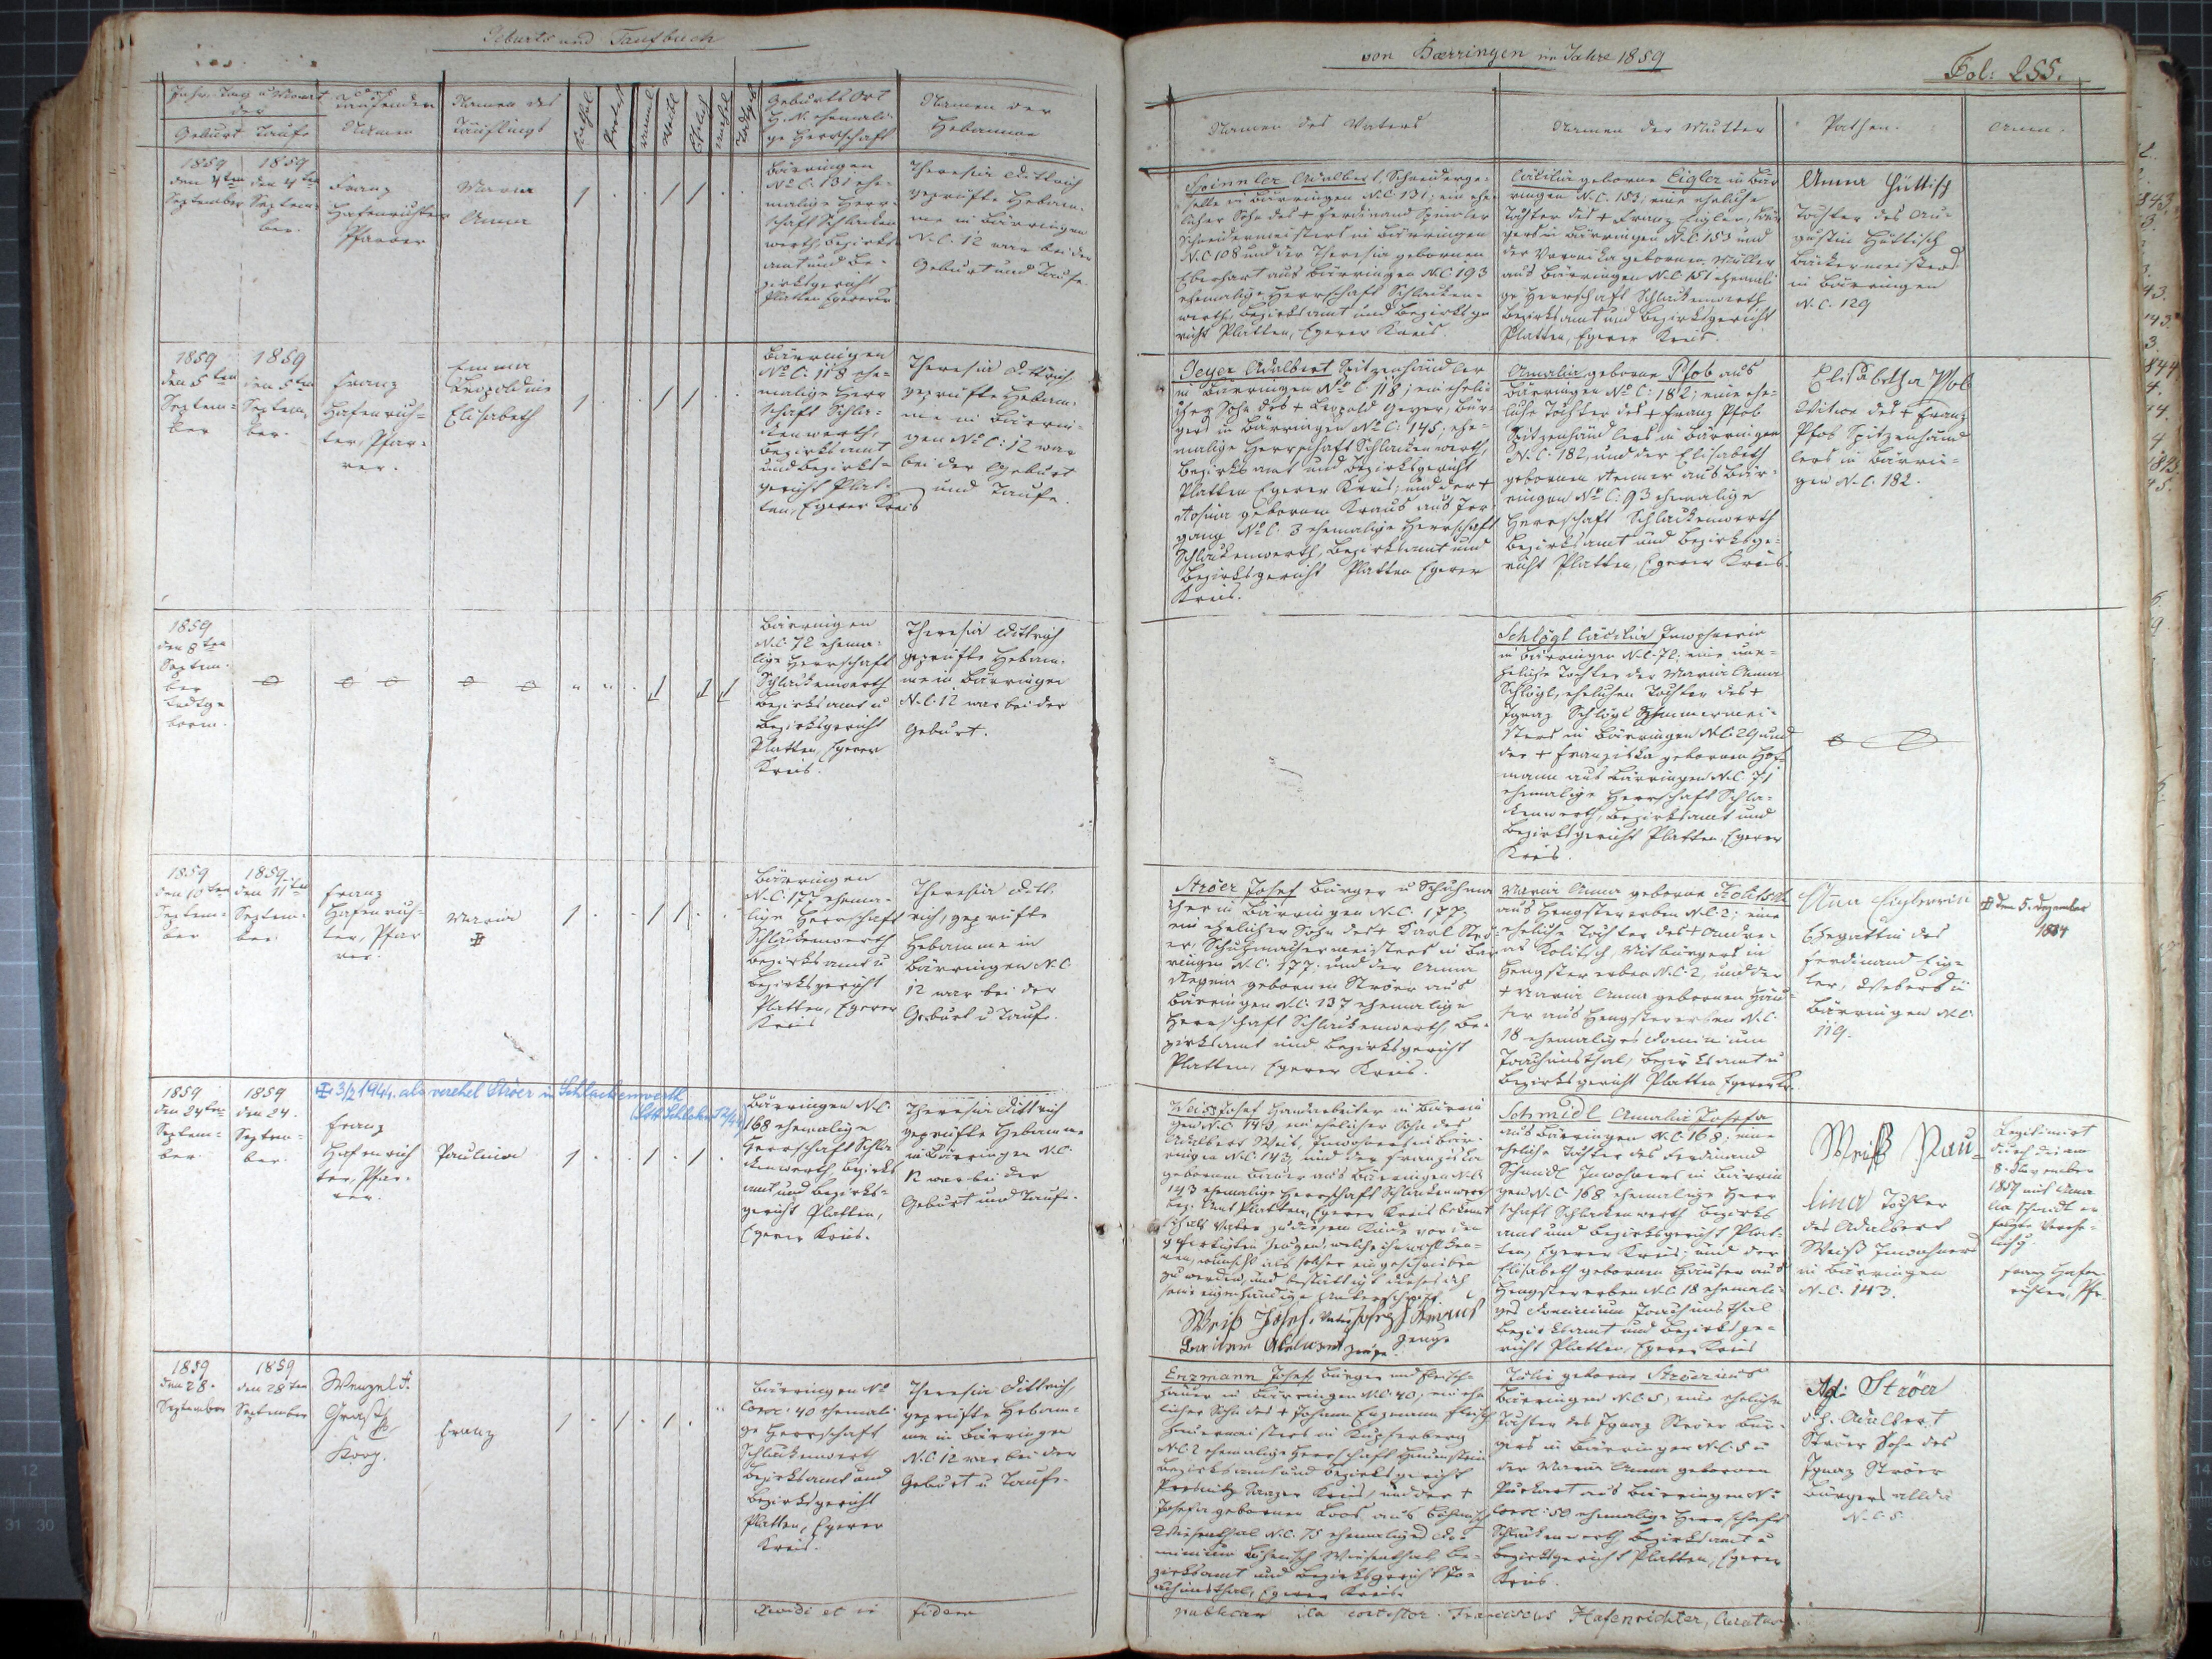 Geburts und Taufbuch
von Bærringen im Jahre 1859
Fol: 255.
Jahr, Tag u Monat
der
Geburt Taufe
Taufenden
Namen
Namen des
Täuflings
Kathol
Protest
männl
Weibl
Ehelich
unehel
Todtgeb
Geburts Ort
H. N. ehemali-
ge Herrschaft
Namen der
Hebamme
Namen des Vaters
Namen der Mutter
Pathen.
Anm.
1859
den 4ten
September
1859
den 4ten
Septem-
ber.
Franz
Hafenrichter
Pfarrer
Maria
Anna
Bärringen
No C. 131 ehe-
malige Herr-
schaft Schlacken
werth, Bezirks
amt und Be-
zirksgericht
Platten Egerer Kr.
Theresia Dittrich
geprüfte Hebam-
me in Bärringen
N. C. 12 war bei der
Geburt und Taufe.
Spinnler Adalbert, Schneiderge-
selle in Bärringen N. C. 131; ein ehe-
licher Sohn des + Ferdinand Spinnler
Schneidermeisters in Bärringen
N. C. 108 und der Theresia gebornen
Eberhart aus Bärringen N. C. 193
ehemalige Herrschaft Schlacken-
werth, Bezirksamt und Bezirksge
richt Platten, Egerer Kreis
Cäcilia geborne Eigler in Bär
ringen N. C. 153; eine eheliche
Tochter des + Franz Eigler, Bür
gers in Bärringen N. C. 153 und
der Veronika gebornen Müller
aus Bärringen N. C. 151 ehemali
ge Herrschaft Schlackenwerth
Bezirksamt und Bezirksgericht
Platten, Egerer Kreis.
Anna Hüttisch
Tochter des Au-
gustin Hüttisch
Bäckermeisters
in Bärringen
N. C. 129
1859
den 5ten
Septem-
ber
1859
den 5ten
Septem-
ber.
Franz
Hafenrich-
ter, Pfar-
rer.
Emma
Leopoldine
Elisabeth
Bärringen
No C. 118 ehe-
malige Herr
schaft Schla-
ckenwerth,
Bezirksamt
und Bezirks-
gericht Plat-
ten, Egerer Kreis
Theresia Dittrich
geprüfte Hebam-
me in Bärrin-
gen No C: 12 war
bei der Geburt
und Taufe.
Geyer Adalbert Spitzenhändler
in Bärringen No C 118; ein eheli
cher Sohn des + Leopold Geyer, Bür-
gers in Bärringen No C. 145; ehe-
malige Herrschaft Schlackenwerth,
Bezirksamt und Bezirksgericht
Platten Egerer Kreis; und der +
Rosina gebornen Kraus aus
No C. 3 ehemalige Herrschaft
Schlackenwerth, Bezirksamt und
Bezirksgericht Platten Egerer
Kreis.
Amalia geborne Pfob aus
Bärringen No C: 182; eine ehe-
liche Tochter des + Franz Pfob
Spitzenhändlers in Bärringen
N. C. 182, und der Elisabeth
gebornen Renner aus Bär-
ringen No C: 93 ehemalige
Herrschaft Schlackenwerth
Bezirksamt und Bezirksge-
richt Platten, Egerer Kreis.
Elisabetha Pfob
Witwe des + Franz
Pfob Spitzenhänd
lers in Bärrin-
gen N. C. 182.
1859
den 8ten
Septem-
ber
todtge
boren.
Bärringen
N. C. 72 ehema-
lige Herrschaft
Schlackenwerth
Bezirksamt u
Bezirksgericht
Platten, Egerer
Kreis.
Theresia Dittrich
geprüfte Hebam-
me in Bärringen
N. C. 12 war bei der
Geburt.
Schlögl Cäcilia Inwohnerin
in Bärringen N. C. 72; eine une-
heliche Tochter der Maria Anna
Schlögl, ehelichen Tochter des +
Ignaz Schlögl Zimmermei-
sters in Bärringen N. C. 29 und
der + Franziska gebornen Hof-
mann aus Bärringen N. C. 71
ehemalige Herrschaft Schla-
ckenwerth, Bezirksamt und
Bezirksgericht Platten, Egerer
Kreis.
1859
den 10ten
Septem-
ber
1859
den 11ten
Septem-
ber.
Franz
Hafenrich-
ter, Pfar
rer.
Maria
Bärringen
N. C. 177 ehema-
lige Herrschaft
Schlackenwerth
Bezirksamt u
Bezirksgericht
Platten, Egerer
Kreis
Theresia Ditt-
rich, geprüfte
Hebamme in
Bärringen N. C.
12 war bei der
Geburt u Taufe.
Ströer Josef Bürger u Schuhma
cher in Bärringen N. C. 177
ein ehelicher Sohn des + Karl Strö-
er, Schuhmachermeisters in Bär
ringen N. C. 177. und der Anna
Regina gebornen Ströer aus
Bärringen N. C. 137 ehemalige
Herrschaft Schlackenwerth, Be-
zirksamt und Bezirksgericht
Platten, Egerer Kreis.
Maria Anna geborne Kolitsch
aus Hengstererben N. C. 2; eine
eheliche Tochter des + Andre-
as Kolitsch, Mitbürgers in
Hengstererben N. C. 2, und der
+ Maria Anna gebornen Häu-
ser aus Hengstererben N. C.
18 ehemaliges Dominium
Joachimsthal, Bezirksamt u
Bezirksgericht Platten Egerer Kr.
Anna Eiglerin
Ehegattin des
Ferdinand Eig-
ler, Webers in
Bärringen N. C.
119.
den 5. Dezember
1884
1859
den 24ten
Septem-
ber.
1859
den 24.
Septem-
ber.
3/2 1944. als verehel Ströer in Schlackenwerth
Franz
Hafenrich
ter, Pfar-
rer.
Paulina
Bärringen N. C.
168 ehemalige
Herrschaft Schla
ckenwerth, Bezirks
amt und Bezirks-
gericht Platten,
Egerer Kreis.
Theresia Dittrich
geprüfte Hebamme
in Bärringen N. C.
12 war bei der
Geburt und Taufe.
Weiß Josef Handarbeiter in Bärrin
gen N. C. 143, ein ehelicher Sohn des
Adalbert Weiß, Inwohners in Bär-
ringen N. C. 143 und der Franziska
gebornen Bauer aus Bärringen N. C.
143 ehemalige Herrschaft Schlackenwerth
Bez. Amt Platten, Egerer Kreis bekennt
sich als Vater zu diesem Kinde vor den
gefertigten Zeugen, welche ihn wohl ken-
nen, wünscht als solcher eingeschrieben
zu werden, und bestättigt dieses durch
seine eigenhändige Unterschrift
Weiß Josef, Vater
Zeuge
Zeuge
Schmidl Amalia Josefa
aus Bärringen N. C. 168; eine
eheliche Tochter des Ferdinand
Schmidl Inwohners in Bärrin
gen N. C. 168 ehemalige Herr
schaft Schlackenwerth Bezirks
amt und Bezirksgericht Plat-
ten, Egerer Kreis; und der
Elisabeth gebornen Häuser aus
Hengstererben N. C. 18 ehemali-
ges Dominium Joachimsthal
Bezirksamt und Bezirksge-
richt Platten, Egerer Kreis
Weiß Pau-
lina Tochter
des Adalbert
Weiß Inwohners
in Bärringen
N. C. 143.
Legitimirt
durch die am
8. November
mit Ama
lia Schmidl er
folgte Vereh-
lichg.
Franz Hafen-
richter, Pfr.
1859
den 28.
September
1859
den 28ten
September
Wenzel
Koop.
Franz
Bärringen No
Conc: 40 ehemali
ge Herrschaft
Schlackenwerth
Bezirksamt und
Bezirksgericht
Platten, Egerer
Kreis.
Theresia Dittrich,
geprüfte Hebam-
me in Bärringen
N. C. 12 war bei der
Geburt u Taufe.
Enzmann Josef Bürger und Fleisch-
hauer in Bärringen N. C. 40; ein ehe
licher Sohn des + Johann Enzmann Fleisch
hauermeisters in Kupferberg
N. C. 2 ehemalige Herrschaft Hauenstein
Bezirksamt und Bezirksgericht
Presnitz Saazer Kreis, und der +
Josefa gebornen Loos aus Böhmisch
Wiesenthal N. C. 75 ehemaliges Do-
minium Böhmisch Wiesenthal, Be-
zirksamt und Bezirksgericht Jo-
achimsthal, Egerer Kreis.
Julie geborne Ströer aus
Bärringen N. C. 5, eine eheliche
Tochter des Ignaz Ströer Bür-
gers in Bärringen N. C. 5 u
der Maria Anna gebornen
Purkart aus Bärringen N.
Conc: 50 ehemalige Herrschaft
Schlackenwerth Bezirksamt u
Bezirksgericht Platten, Egerer
Kreis.
Ströer
d. h. Adalbert
Ströer Sohn des
Ignaz Ströer
Bürgers allda
N. C. 5.
Revidi et in fidem
publicam ita contestor. Franciscus Hafenrichter, Curatus.